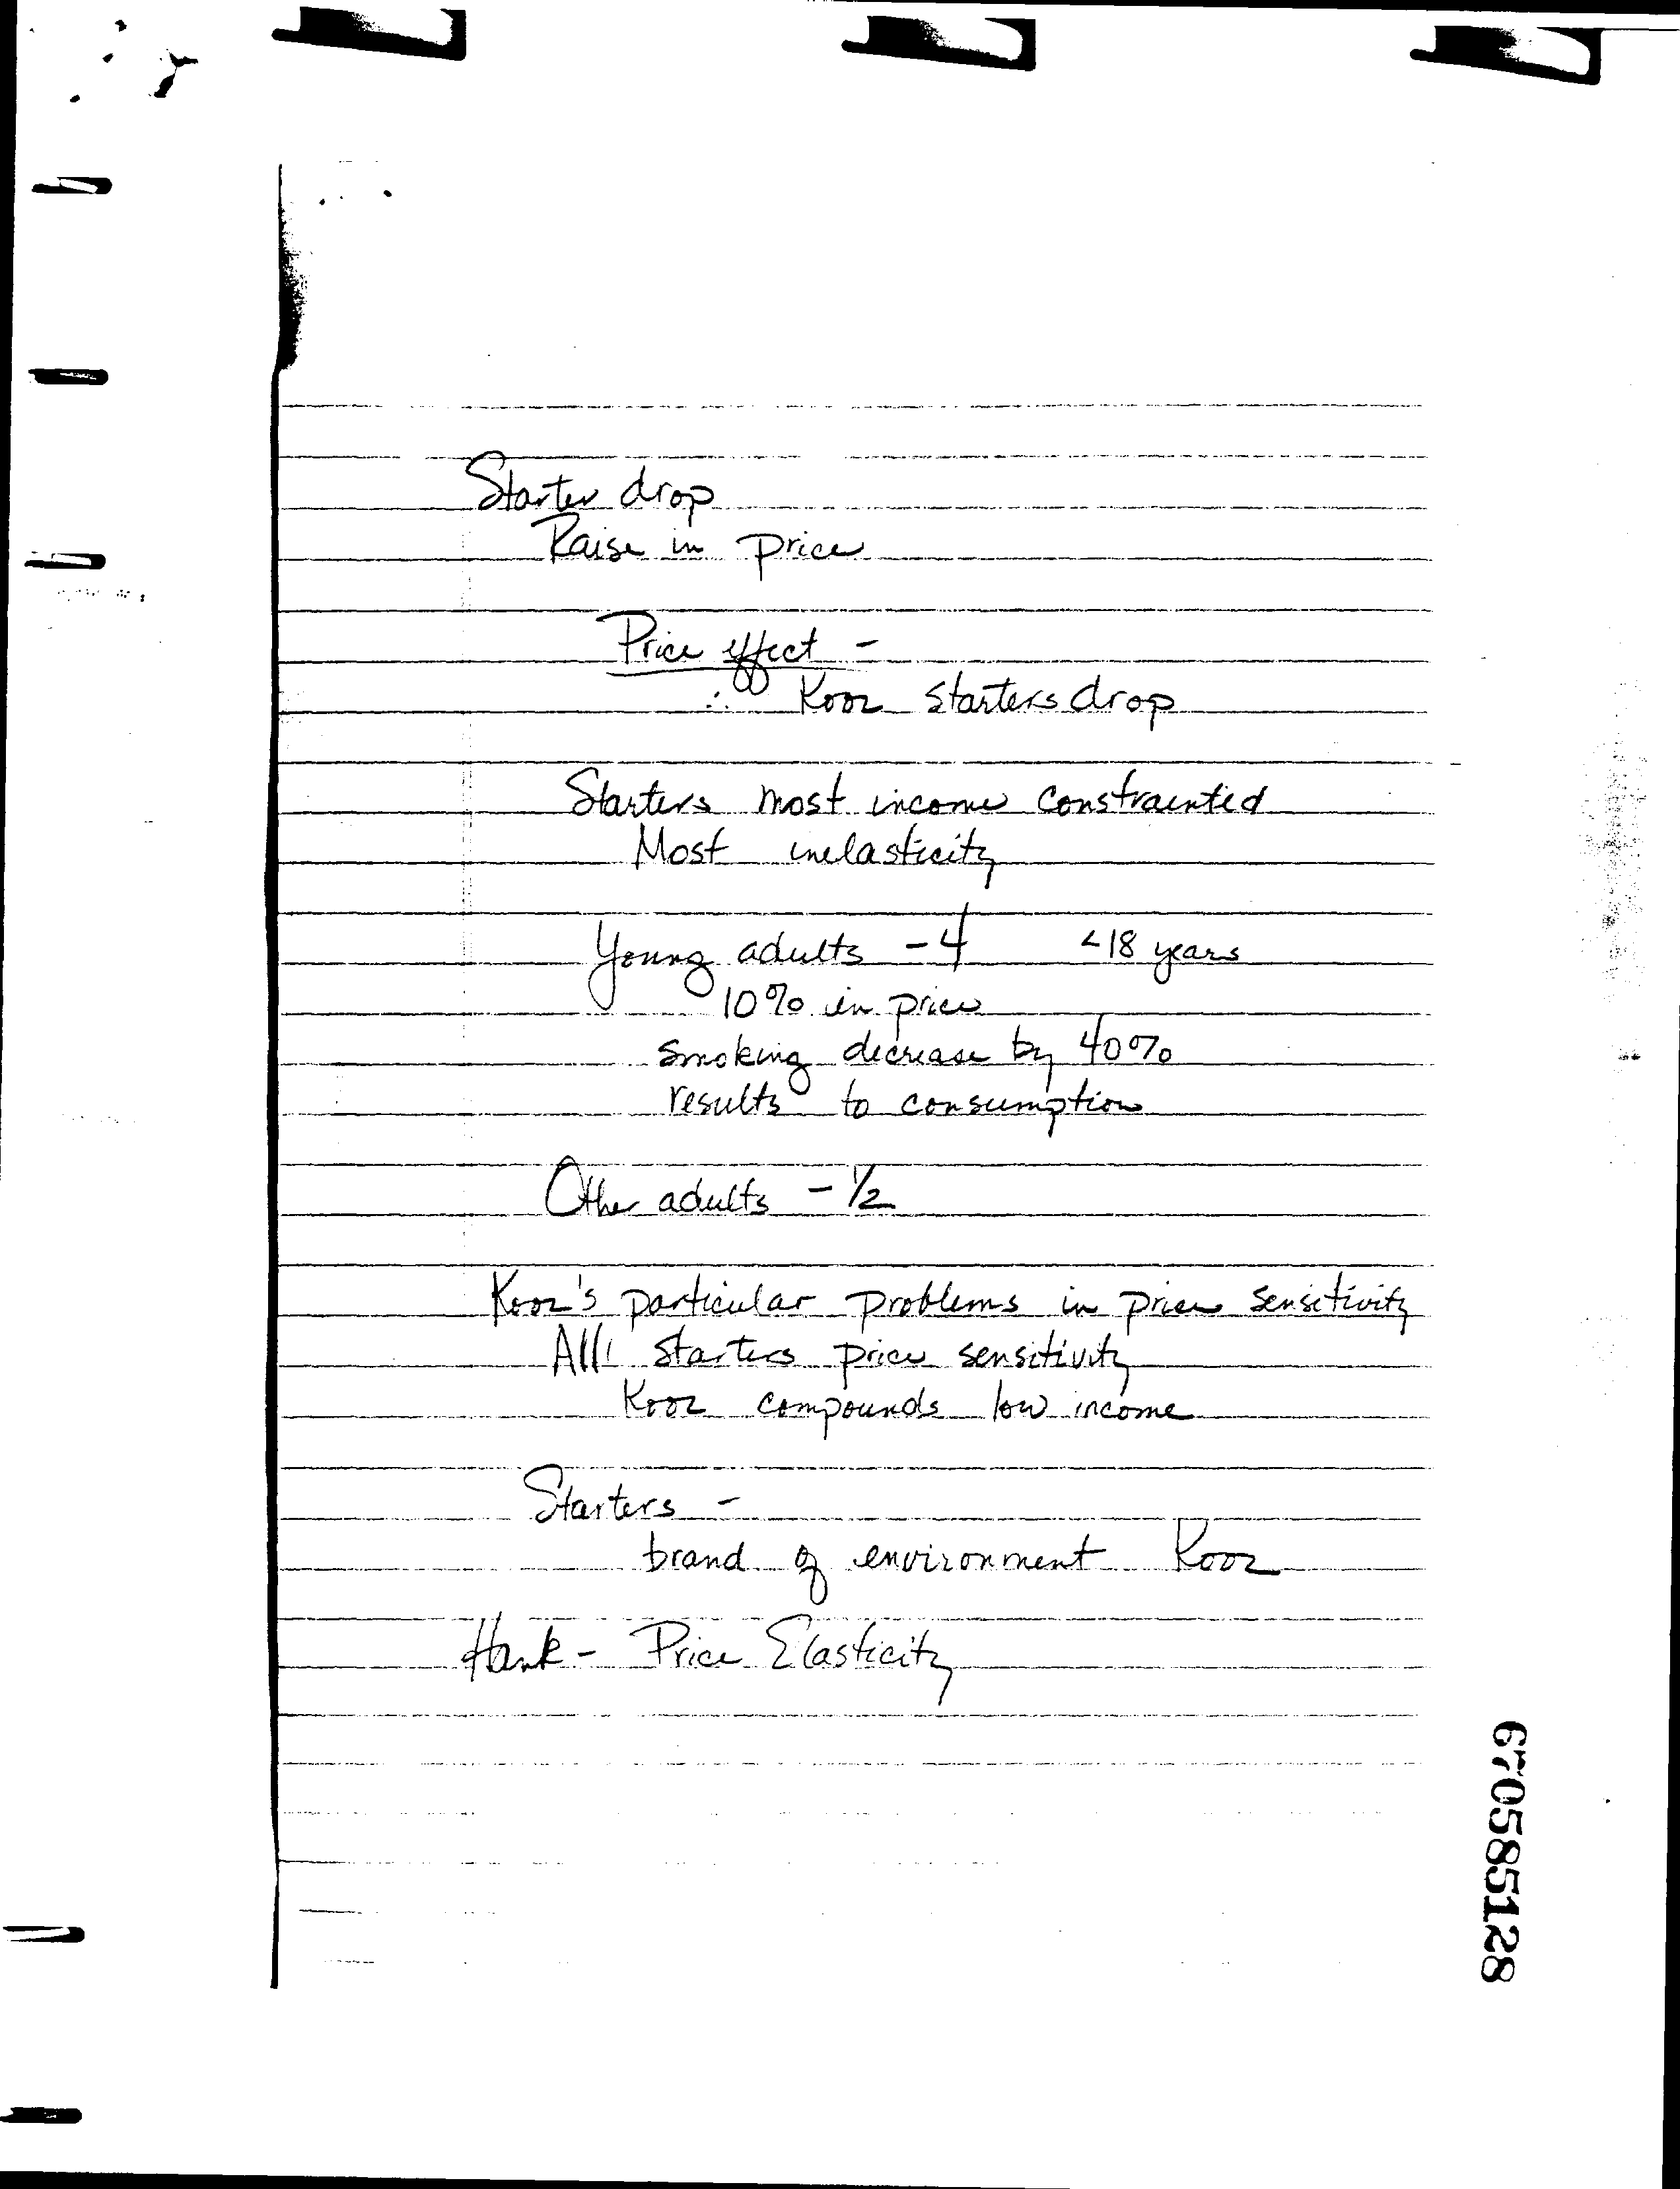 Starter drop
Raise in price
Price effect -
∴ Kool starters drop
Starters most income constrainted
Most inelasticity
Young adults - 4 <18 years
10% in price
smoking decrease by 40%
results to consumption
Other adults - 1/2
Kool's particular problems in price sensitivity
All starters price sensitivity
Kool compounds low income
Starters -
brand of environment Kool
Hank - Price Elasticity
670585128